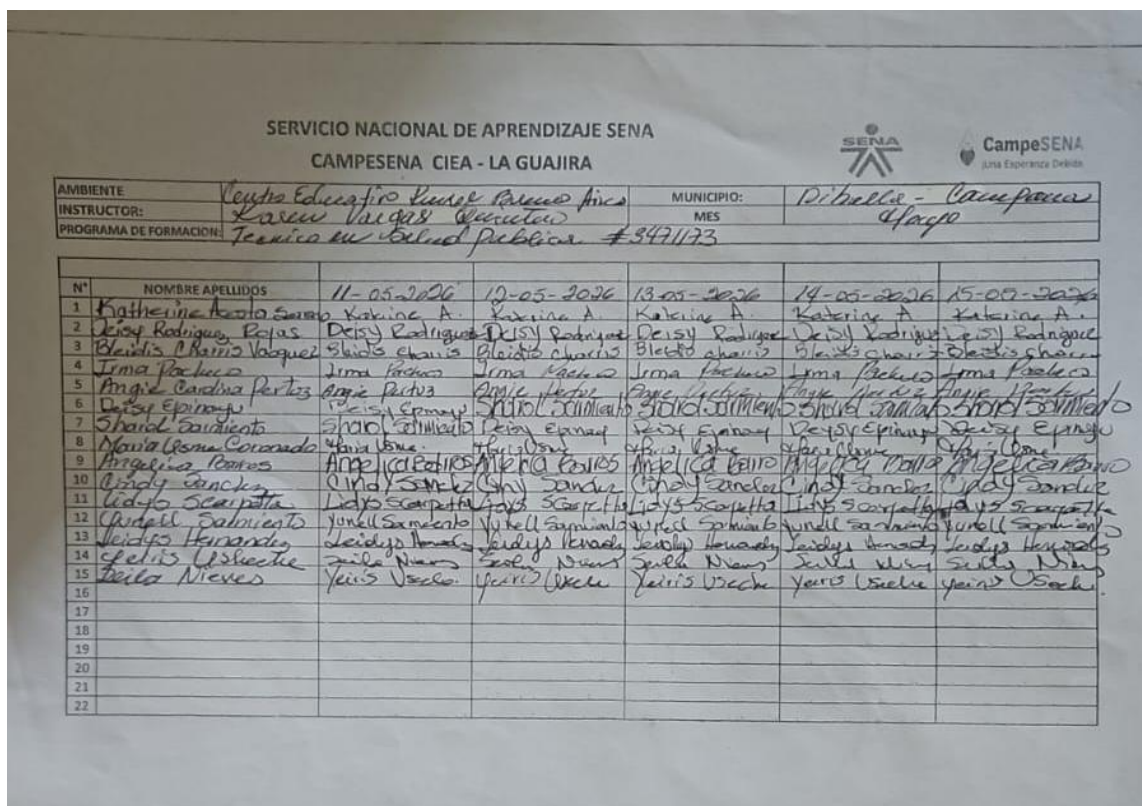 SERVICIO NACIONAL DE APRENDIZAJE SENA
CAMPESENA CIEA - LA GUAJIRA
SENA
CampeSENA
AMBIENTE Centro Educativo Buenos Aires MUNICIPIO: Dibulla - Campana
INSTRUCTOR: Karen Vargas MES Mayo
PROGRAMA DE FORMACION: Tecnico en Salud Publica #3471173
N° NOMBRE APELLIDOS 11-05-2026 12-05-2026 13-05-2026 14-05-2026 15-05-2026
1 Katherine Acosta Katerine A. Katerine A. Katerine A. Katerine A. Katerine A.
2 Deisy Rodriguez Rojas Deisy Rodriguez Deisy Rodriguez Deisy Rodriguez Deisy Rodriguez Deisy Rodriguez
3 Bleidis Charris Vasquez Bleidis charris Bleidis charris Bleidis charris Bleidis charris Bleidis charris
4 Irma Pacheco Irma Pacheco Irma Pacheco Irma Pacheco Irma Pacheco Irma Pacheco
5 Angie Cardina Pertuz Angie Pertuz Angie Pertuz Angie Angie Angie
6 Deisy Epinayu Deisy Epinayu Sharol Sarmiento Sharol Sarmiento Sharol Sarmiento Sharol Sarmiento
7 Sharol Sarmiento Sharol Sarmiento Deisy Epinayu Deisy Epinayu Deysy Epinayu Deisy Epinayu
8 Maria Usma Coronado Maria Usma Maria Usma Maria Usma Maria Usma Maria Usma
9 Angelica Barros Angelica Barros Angelica Barros Angelica Barro Angelica Angelica Barro
10 Cindy Sanchez Cindy Sanchez Cindy Sanchez Cindy Sanchez Cindy Sanchez Cindy Sanchez
11 Lidys Scarpetta Lidys Scarpetta Lidys Scarpetta Lidys Scarpetta Lidys Scarpetta Lidys Scarpetta
12 Yurell Sarmiento Yurell Sarmiento Yurell Sarmiento Yurell Sarmiento Yurell Sarmiento Yurell Sarmiento
13 Leidys Hernandez Leidys Leidys Leidys Leidys Leidys
14 Yeiris Useche Seila Nieves Nieves Seila Nieves Seila Seila
15 Seila Nieves Yeiris Useche Yeiris Useche Yeiris Useche Yeiris Useche Yeiris Useche
16
17
18
19
20
21
22